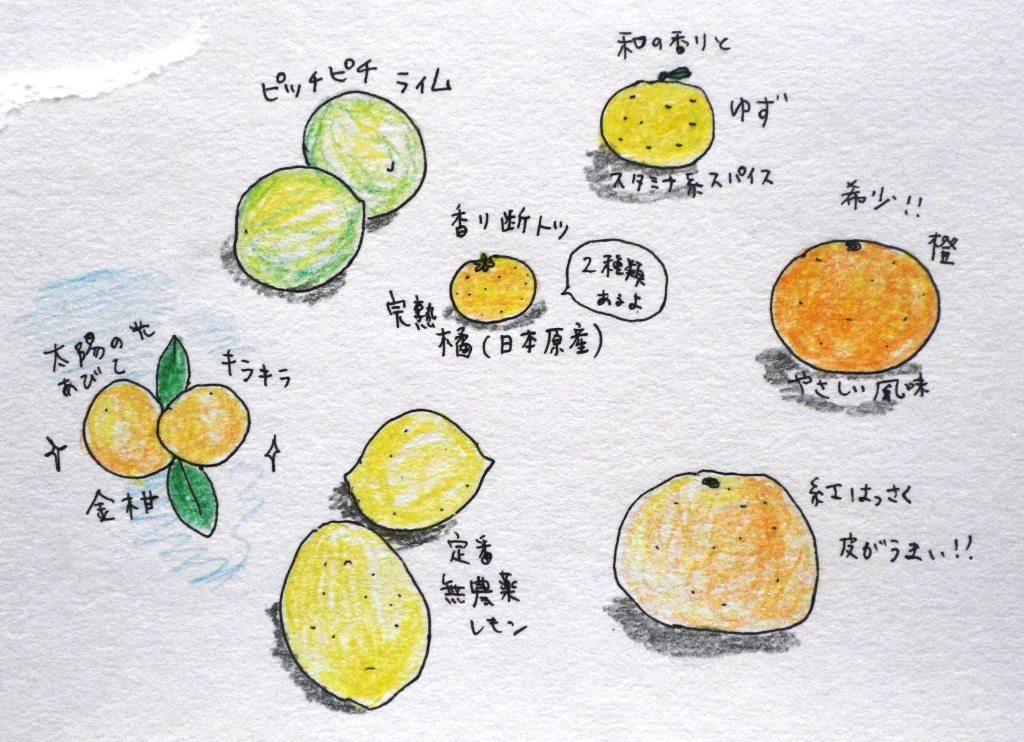 ピッチピチ ライム
和の香りと
ゆず
スタミナ系スパイス
希少!!
橙
やさしい風味
香り断トツ
完熟
橘(日本原産)
2種類
あるよ
太陽の光
あびて
キラキラ
金柑
定番
無農薬
レモン
紅はっさく
皮がうまい!!